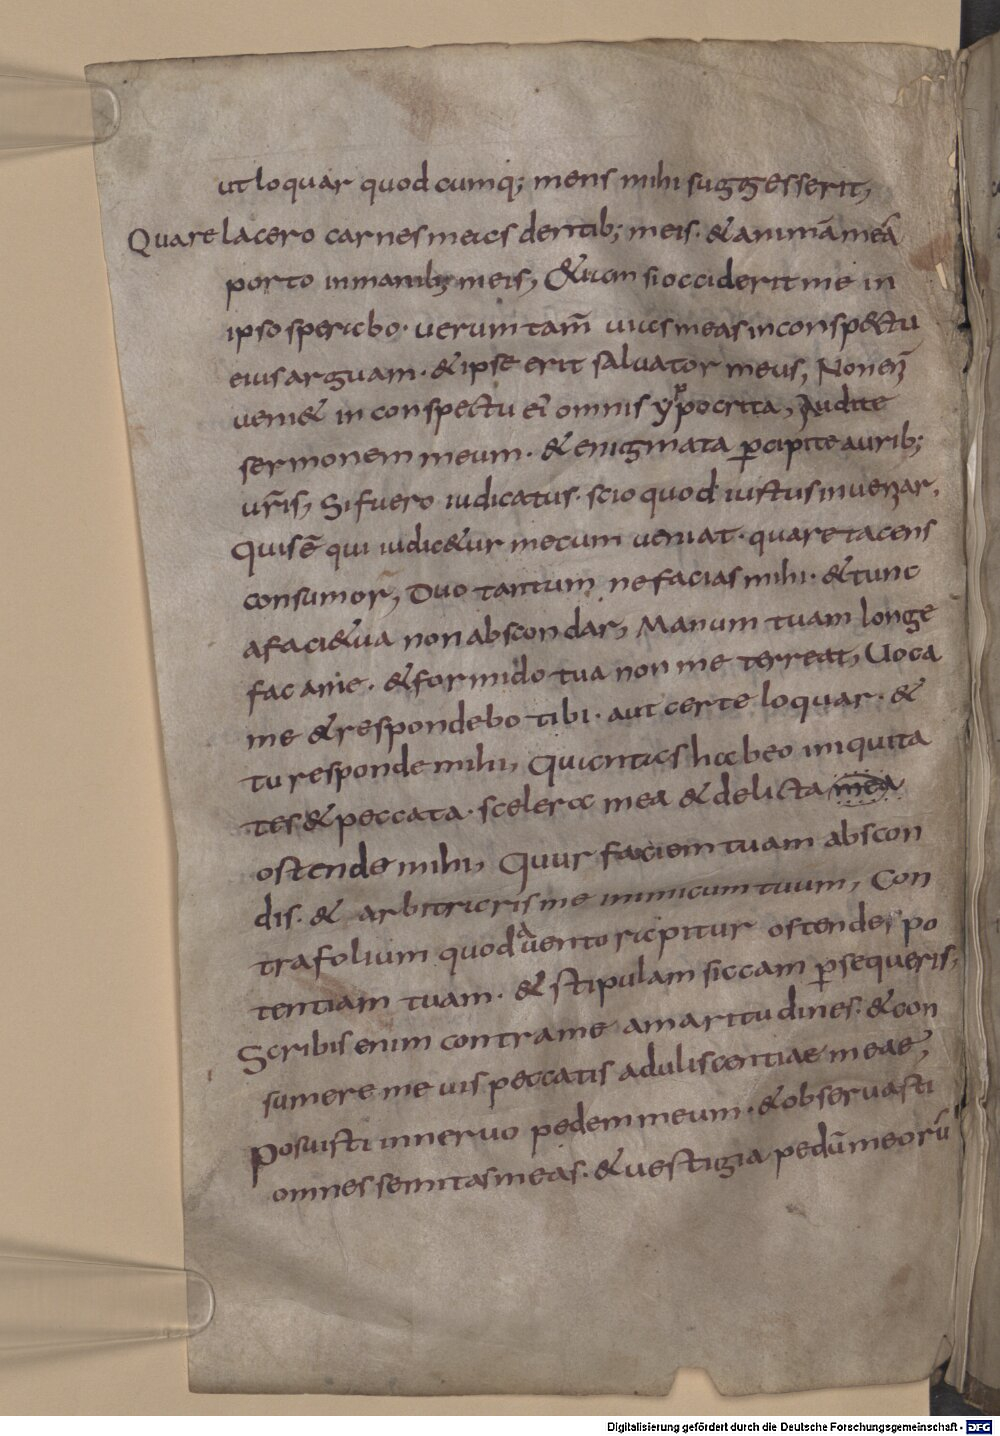 ut loquar quod cumq; mens mihi suggesserit,
Quare lacero carnes meas dentib; meis. & animā meā
porto in manib; meis, &iam si occiderit me in
ipso sperabo. uerum tam̄ uias meas in conspectu
eius arguam. & ipse erit saluator meus, Non eni̅
ueni& in conspectu ei' omnis ypocrita, Audite
sermonem meum. & enigmata p̱cipite aurib;
ur̄is, Si fuero iudicatus. scio quod iustus inueniar.
Quis ē qui iudic&ur mecum ueniat. quare tacens
consumor, Duo tantum ne facias mihi. & tunc
a faci&ua non abscondar, Manum tuam longe
fac a me. & formido tua non me terreat, Uoca
me & respondebo tibi. aut certe loquar. &
tu responde mihi, Quantas habeo iniquita
tes & peccata. scelera mea & delicta mea
ostende mihi, Quur faciem tuam abscon
dis. & arbitraris me inimicum tuum, Con
tra folium quod a uento rapitur ostendes po
tentiam tuam. & stipulam siccam p̱sequeris,
Scribis enim contra me amaritudines. & con
sumere me uis peccatis aduliscentiae meae,
Posuisti in neruo pedem meum. & obseruasti
omnes semitas meas. & uestigia pedū meorū
Digitalisierung gefördert durch die Deutsche Forschungsgemeinschaft - DFG